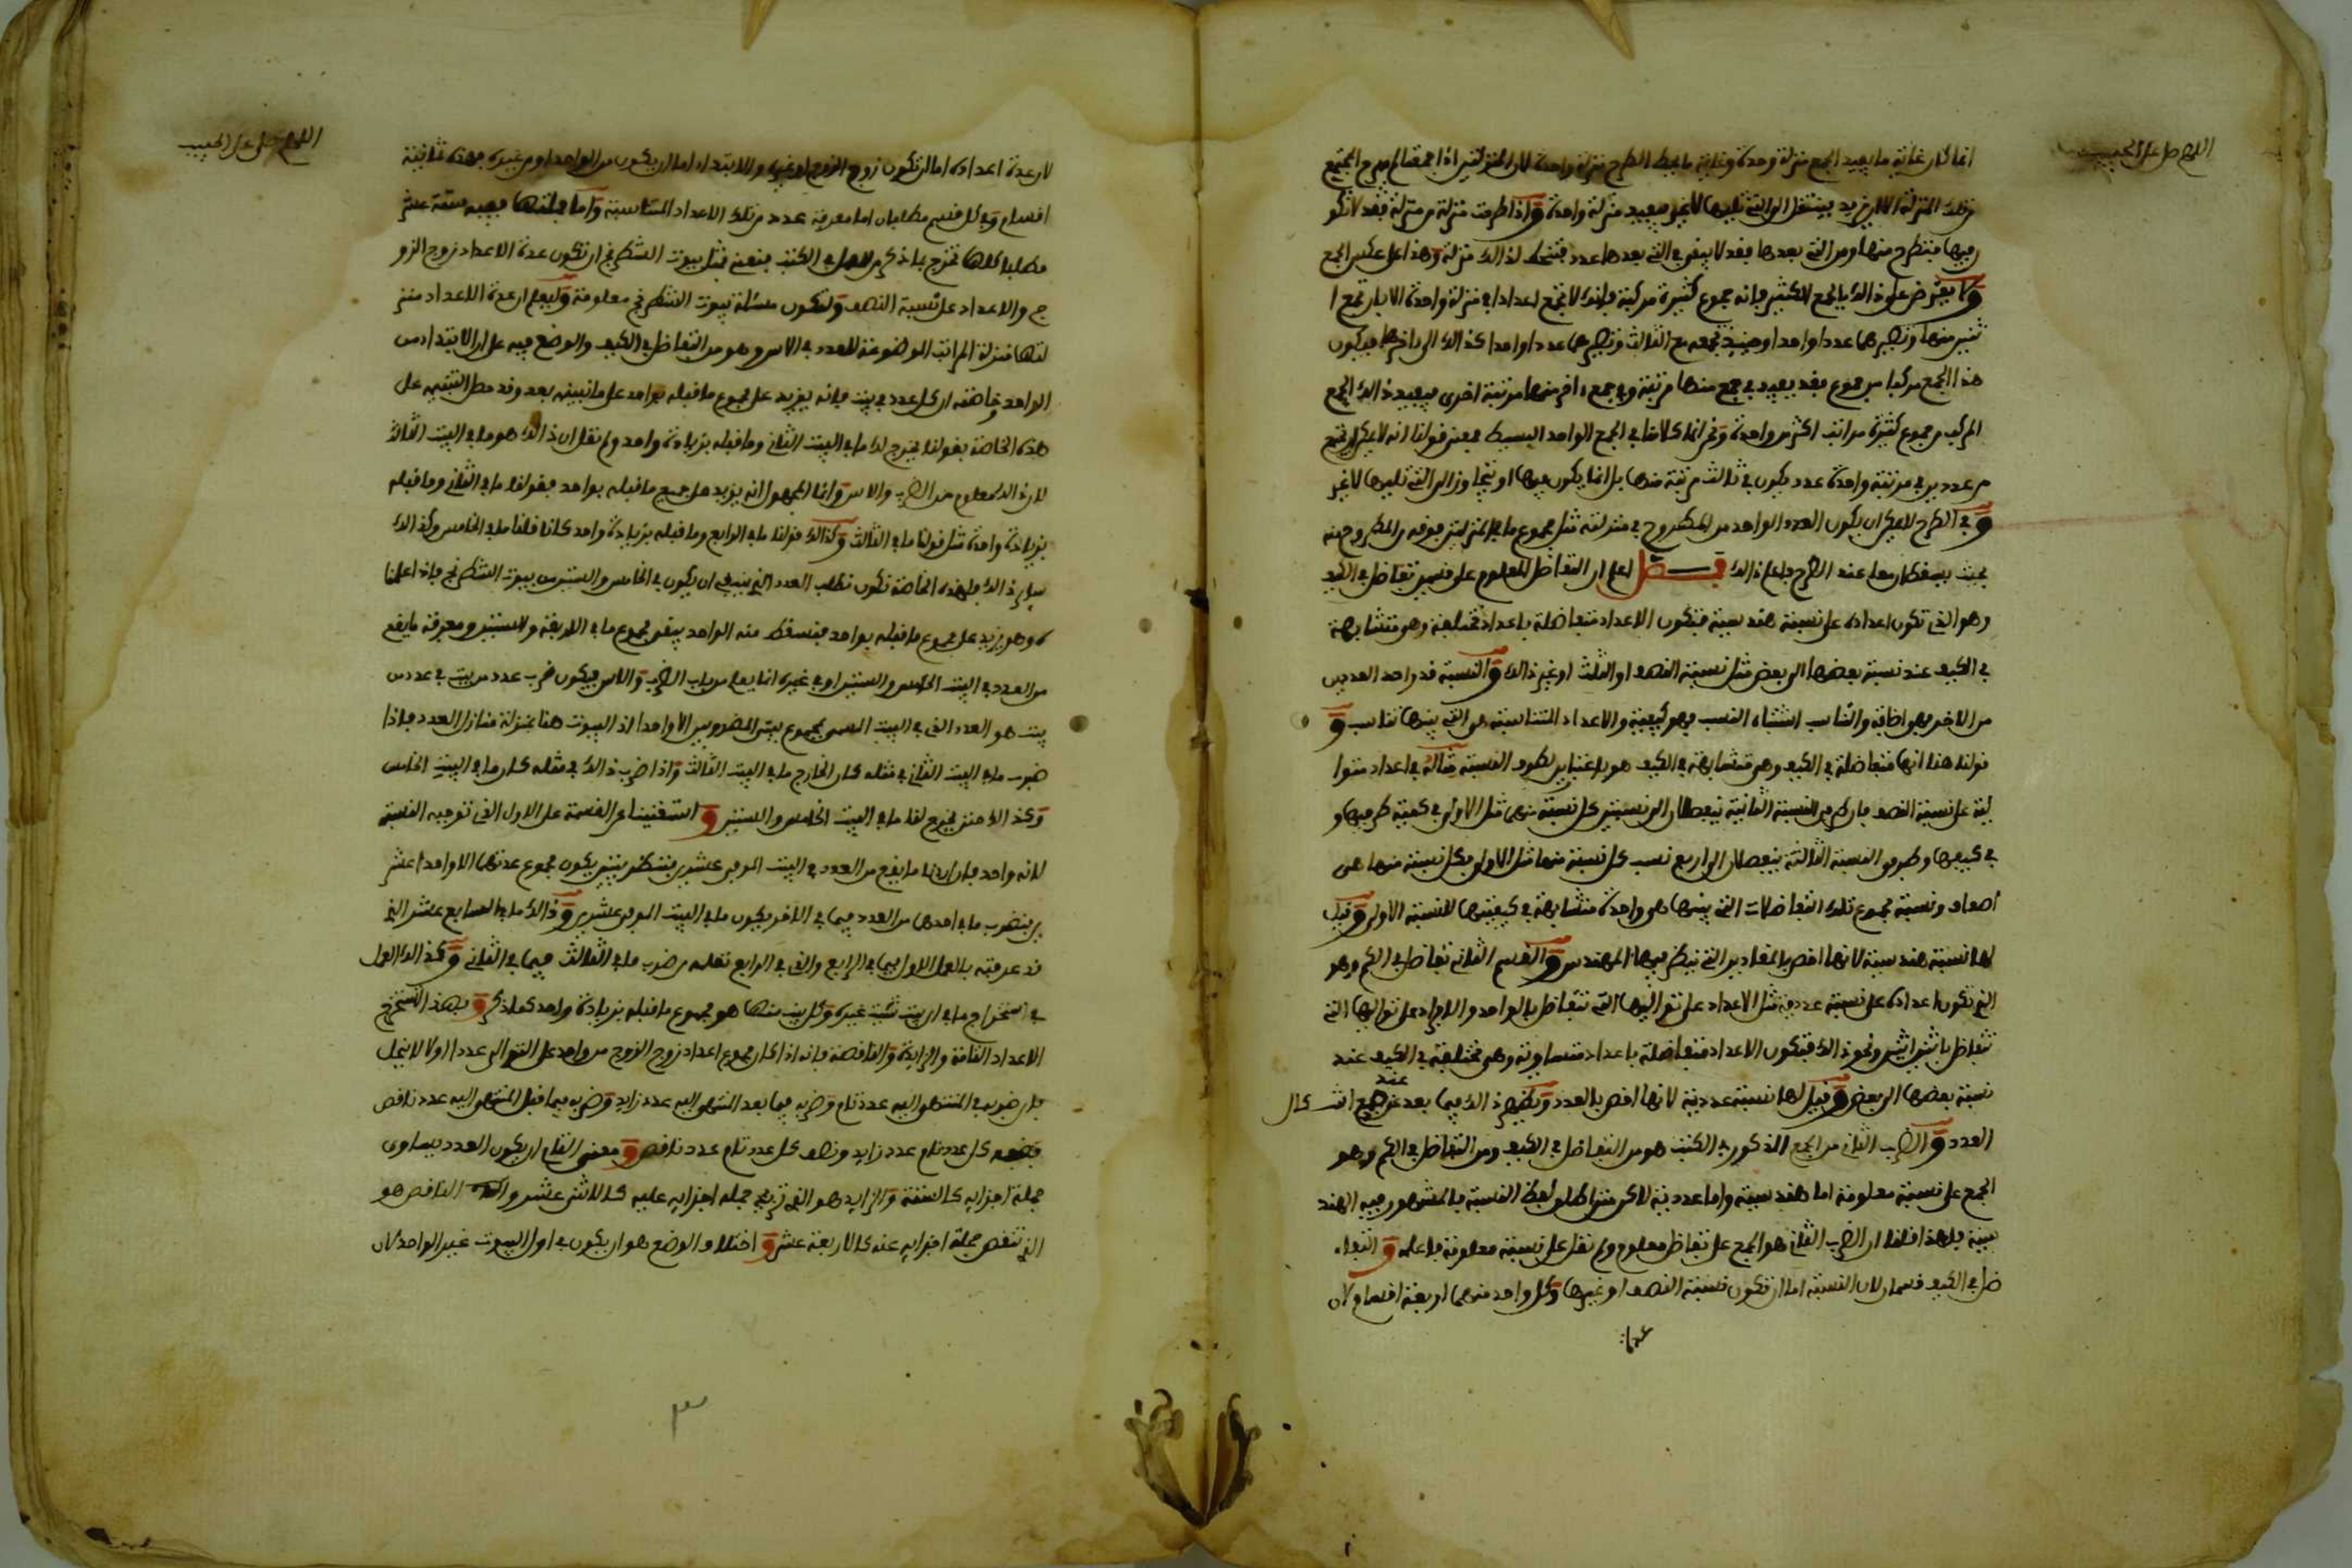 اللهم صل على الحبيب
انما كان غاية ما يفيد الجمع منزلة وحدة وغاية ما يحط الطرح منزلة واحدة لان المنزلتين اذا اجتمعتا لم يخرج المجتمع
من تلك المنزلة الا ان يزيد فينتقل الى التي تليها لا غير فيفيد منزلة واحدة واذا طرحت منزلة من منزلة فقد لا تكو
ن فيها فتطرح منها ومن التي بعدها فقد لا يبقى في التي بعدها عدد فتنحط لذالك منزلة وهذا على عكس الجمع
ولا يعترض على ذالك بالجمع الكثير فانه جموع كثيرة مركبة فانك لا تجمع اعدادا في منزلة واحدة الا بان تجمع ا
ثنين منها وتصيرهما عددا واحدا وحينئذ تجمعه مع الثالث وتصيرهما عددا واحدا كذالك الى اخرها فيكون
هذا الجمع مركبا من جموع فقد يفيد في جمع منها مرتبة وفي جمع ءاخر منها مرتبة اخرى فيفيد ذالك الجمع
المركب من جموع كثيرة مراتب اكثر من واحدة ونحن انما كلامنا في الجمع الواحد البسيط فمعنى قولنا انه لا يمكن ان يجتمع
من عددين في مرتبة واحدة عدد يكون في ثالث مرتبة منها بل انما يكون فيها او يتجاوز الى التي تليها لا غير
وفي الطرح لا يمكن ان يكون العدد الواحد من المطروح في منزلته مثل مجموع ما في المنزلتين فوقه من المطروح منه
بحيث يسقطان معا عند الطرح فاعلم ذالك فصل اعلم ان التفاضل المعلوم على قسمين تفاضل في الكيف
وهو الذي تكون اعداده على نسبة هندسية فتكون الاعداد متفاضلة باعداد مختلفة وهي متشابهة
في الكيف عند نسبة بعضها الى بعض مثل نسبة النصف او الثلث او غير ذالك والنسبة قدر احد العددين
من الاخر فهو اضافة والتناسب اشتباه النسب فهو كيفية والاعداد المتناسبة هي التي بينها تناسب و
قولنا هنا انها متفاضلة في الكيف وهي متشابهة في الكيف هو باعتبارين لطرف النسبة مثاله في اعداد متوا
لية على نسبة النصف فان طرفي النسبة الثانية ينفصلان الى نسبتين كل نسبة منهما مثل الاولى في كمية طرفيها و
في كيفها وطرفي النسبة الثالثة ينفصلان الى اربع نسب كل نسبة منها مثل الاولى فكل نسبة منها هي
اضعاف ونسبة مجموع تلك التفاضلات التي بينها هي واحدة متشابهة في كيفيتها للنسبة الاولى وقيل
لها نسبة هندسية لانها اخص بالمقادير التي ينظر فيها المهندس والقسم الثاني تفاضل في الكم وهو
الذي تكون اعداده على نسبة عددية مثل الاعداد على تواليها التي تتفاضل بالواحد والافراد على تواليها التي
تتفاضل باثنين اثنين ونحو ذالك فتكون الاعداد متفاضلة باعداد متساوية وهي مختلفة في الكيف عند
نسبة بعضها الى بعض وقيل لها نسبة عددية لانها اخص بالعدد وتظهر ذالك فيما بعد عند جمع اشكال
العدد والضرب الثاني من الجمع المذكور في الكتب هو من التفاضل في الكيف ومن التفاضل في الكم وهو
الجمع على نسبة معلومة اما هندسية واما عددية لاكن متى اطلق لفظ النسبة فالمشهور فيه الهند
سية فلهذا قلنا ان الضرب الثاني هو الجمع على تفاضل معلوم ولم نقل على نسبة معلومة فاعلمه والتفا
ضل في الكيف قسمان لان النسبة اما ان تكون نسبة النصف او غيرها وكل واحد منهما اربعة اقسام لان
عدة
اللهم صل على الحبيب
لان عدة اعداده اما ان تكون زوج الزوج او غيره والابتداء اما ان يكون من الواحد او من غيره فهذه ثمانية
اقسام وفي كل قسم مطلبان اما معرفة عدد من تلك الاعداد المتناسبة واما جملتها ففيه ستة عشر
مطلبا كلها تخرج بما ذكر من العمل في الكتب فنعني مثل بيوت الشطرنج ان تكون عدة الاعداد زوج الزو
ج والاعداد على نسبة النصف ولتكون مسئلة بيوت الشطرنج معلومة وليعلم ان عدة الاعداد منز
لتها منزلة المراتب الموضوعة للعدد في الاس وهو من التفاضل في الكيف والوضع فيه على ان الابتداء من
الواحد وخاصته ان كل عدد في بيت فانه يزيد على مجموع ما قبله بواحد على ما نبينه بعد وقد حصل التنبيه على
هذه الخاصة بقولنا يخرج لك ما في البيت الثاني وما قبله بزيادة واحد ولم نقل ان ذالك هو ما في البيت الثالث
لان ذالك معلوم من الضرب والاس وانما المجهول انه يزيد على جميع ما قبله بواحد فقولنا ما في الثاني وما قبله
بزيادة واحدة مثل قولنا ما في الثالث وكذالك قولنا ما في الرابع وما قبله بزيادة واحد كانا قلنا ما في الخامس وكذالك
ساير ذالك فلهذه الخاصة تكون نطلب العدد الذي ينبغي ان يكون في الخامس والستين من بيوت الشطرنج فاذا علمنا
ه وهو يزيد على مجموع ما قبله بواحد فنسقط منه الواحد يبقى مجموع ما في الاربعة والستين ومعرفة ما يقع
من العدد في البيت الخامس والستين او في غيره انما يعلم من باب الضرب والاس فيكون ضرب عدد من بيت في عدد من
بيت هو العدد الذي في البيت المسمى بمجموع بيتي المضروبين الا واحدا اذ البيوت هنا بمنزلة منازل العدد فاذا
ضرب ما في البيت الثاني في مثله كان الخارج ما في البيت الثالث واذا ضرب ذالك في مثله كان ما في البيت الخامس
وكذالك حتى يخرج لنا ما في البيت الخامس والستين واستغنينا عن القسمة على الاول الذي توجبه النسبة
لانه واحد فان اردنا ما يقع من العدد في البيت الموفي عشرين فننظر بيتين يكون مجموع عدتهما الا واحدا عشر
ين فنضرب ما في احدهما من العدد فيما في الاخر يكون ما في البيت الموفي عشرين وذالك ما في السابع عشر الذي
قد عرفته بالعمل الاول فيما في الرابع والذي في الرابع تعلمه من ضرب ما في الثالث فيما في الثاني وكذالك العمل
في استخراج ما في اي بيت شئت غيره وكل بيت منها هو مجموع ما قبله بزيادة واحد كما ذكر وبهذا تستخرج
الاعداد التامة والزايدة والناقصة فانه اذا كان مجموع اعداد زوج الزوج من واحد على التوالي عددا اولا لا ينحل
فان ضرب في المنتهى اليه عدد تام وضربه فيما بعد المنتهى اليه عدد زايد وضربه فيما قبل المنتهى اليه عدد ناقص
وضعف كل عدد تام عدد زايد ونصف كل عدد تام عدد ناقص ومعنى التام ان يكون العدد يساوي
جملة اجزايه كالستة والزايد هو الذي تزيد جملة اجزايه عليه كالاثني عشر والناقص هو
الذي تنقص جملة اجزايه عنه كالاربعة عشر واختلاف الوضع هو ان يكون في اول البيوت غير الواحد لان
٣